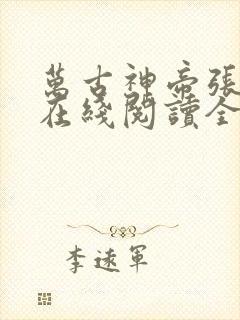 萬古神帝張
在綫閱讀全
李遠軍